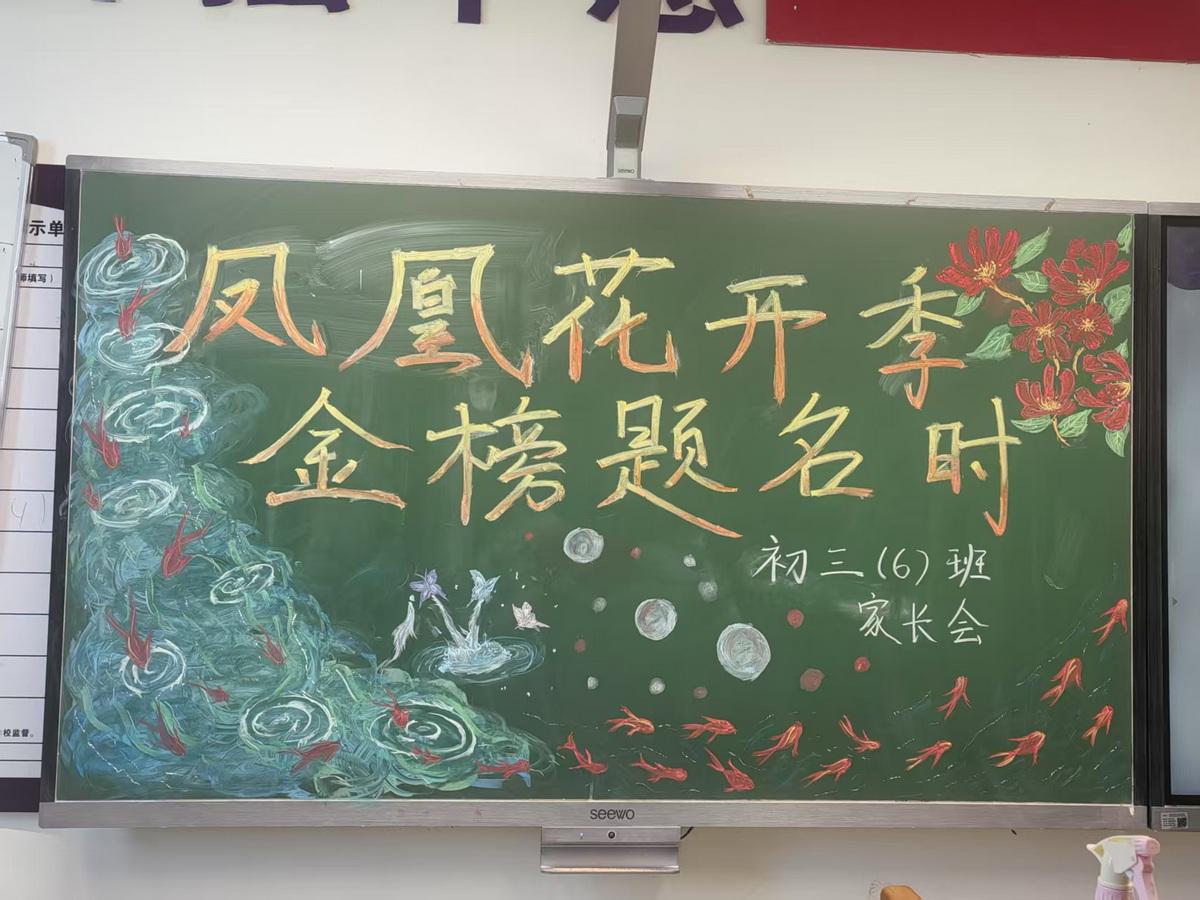 凤凰花开季
金榜题名时
初三(6)班
家长会
seewo
seewo
示单
师填写）
校监督。